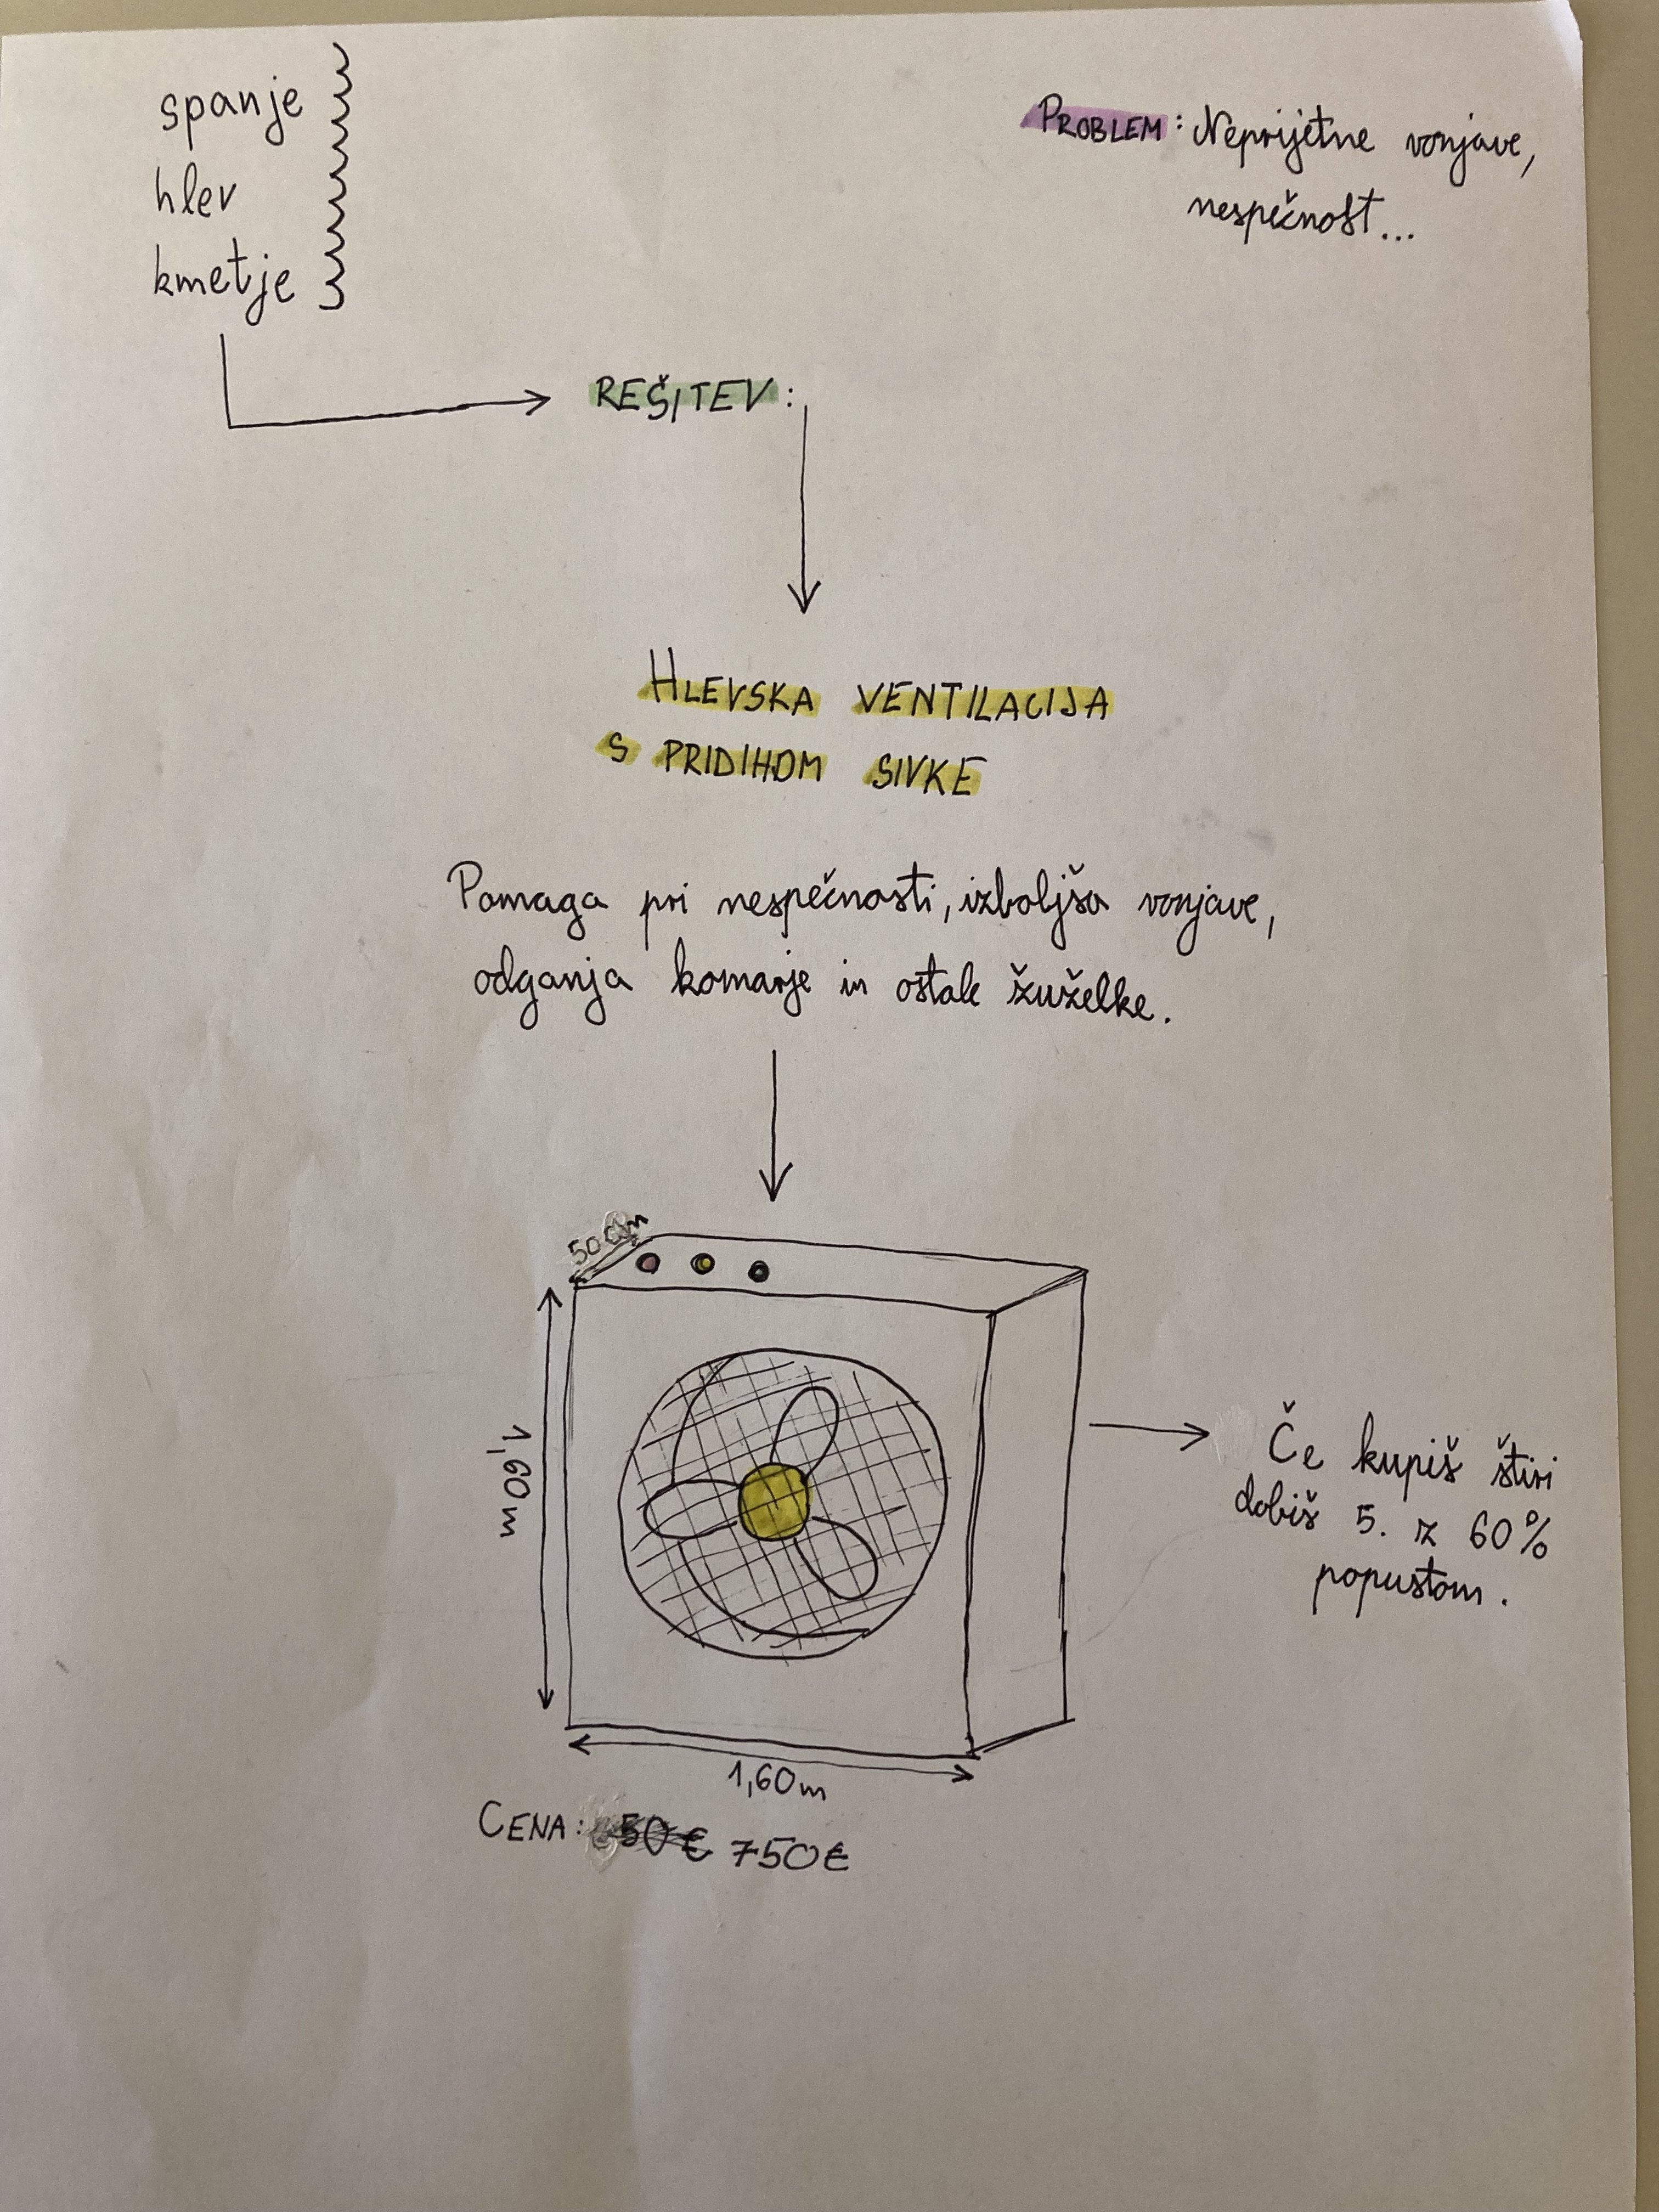 spanje
hlev
kmetje
PROBLEM: Neprijetne vonjave,
nespečnost...
REŠITEV:
HLEVSKA VENTILACIJA
S PRIDIHOM SIVKE
Pomaga pri nespečnosti, izboljša vonjave,
odganja komarje in ostale žuželke.
50cm
1,60m
1,60m
Če kupiš štiri
dobiš 5. z 60%
popustom.
CENA: 750€